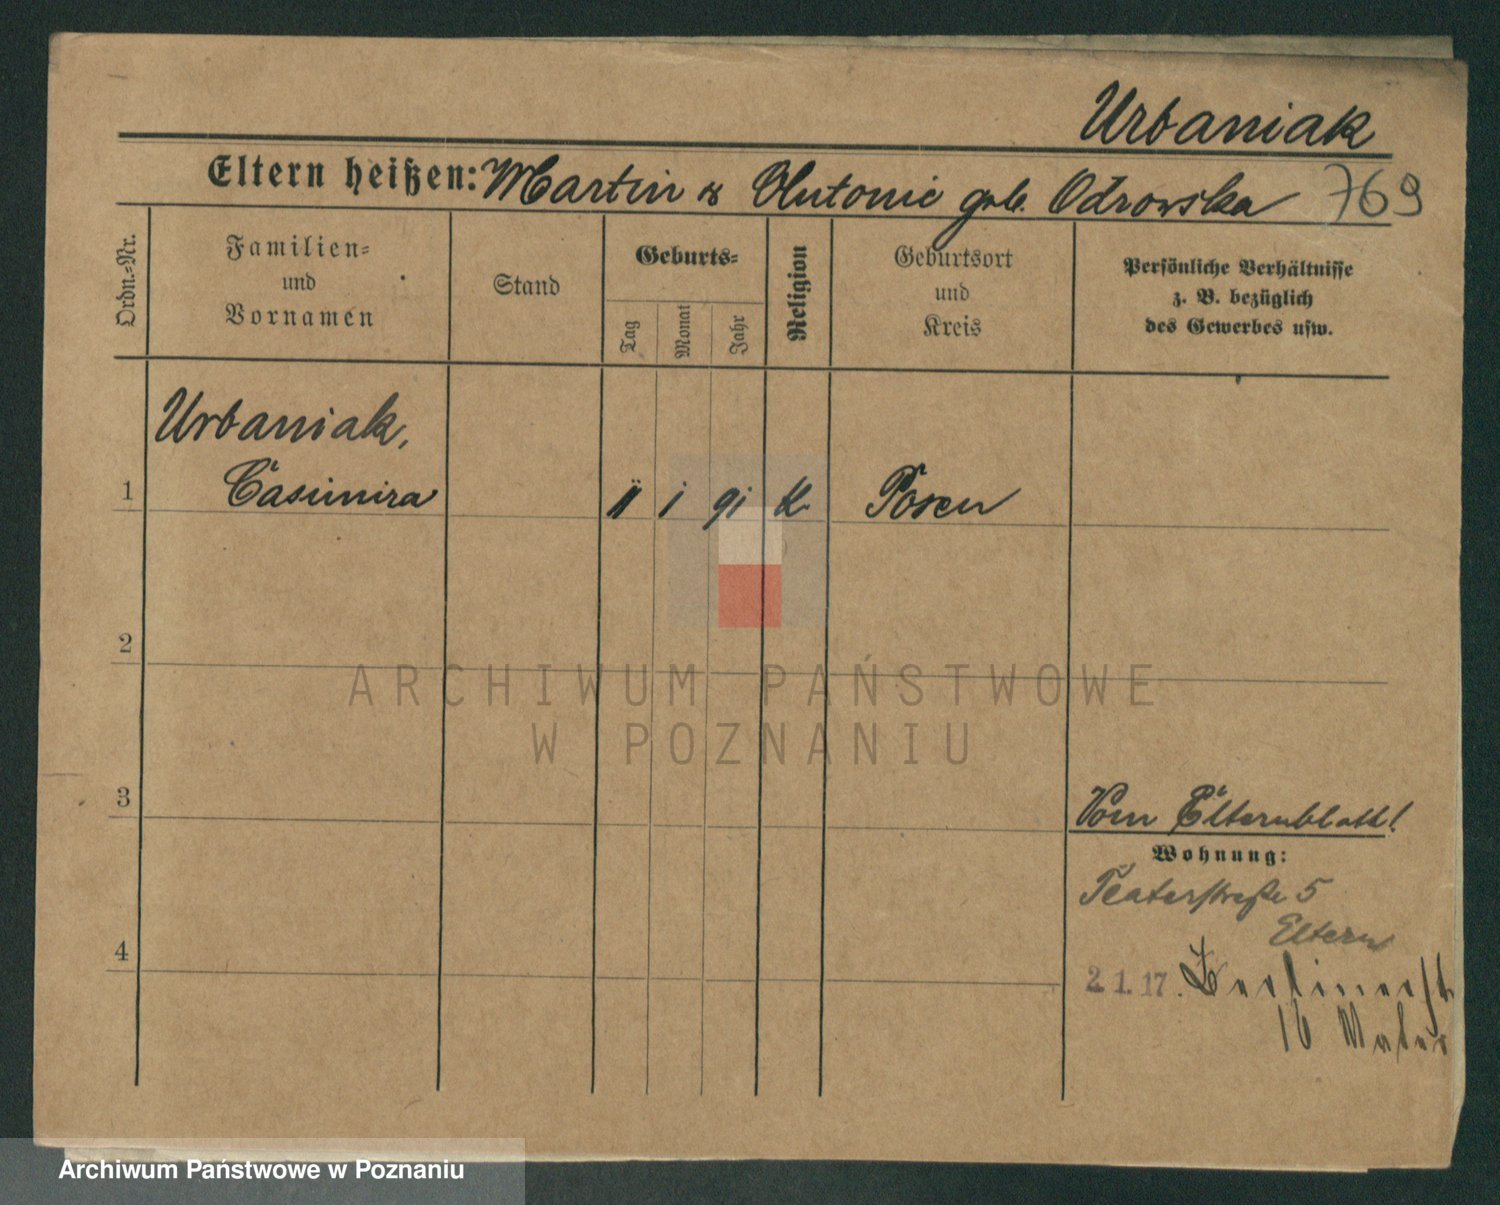 Urbaniak
Eltern heißen: Martin & Antonie geb. Odrowska 769
Ordn.-Nr.
Familien-
und
Vornamen
Stand
Geburts-
Tag
Monat
Jahr
Religion
Geburtsort
und
Kreis
Persönliche Verhältnisse
z. B. bezüglich
des Gewerbes usw.
Urbaniak,
1 Casimira 11 1 91 K. Posen
2
ARCHIWUM PAŃSTWOWE
W POZNANIU
3
Vom Elternblatt!
Wohnung:
Teaterstraße 5
Eltern
4
2.1.17. Berlinerst
16 Mutter
Archiwum Państwowe w Poznaniu